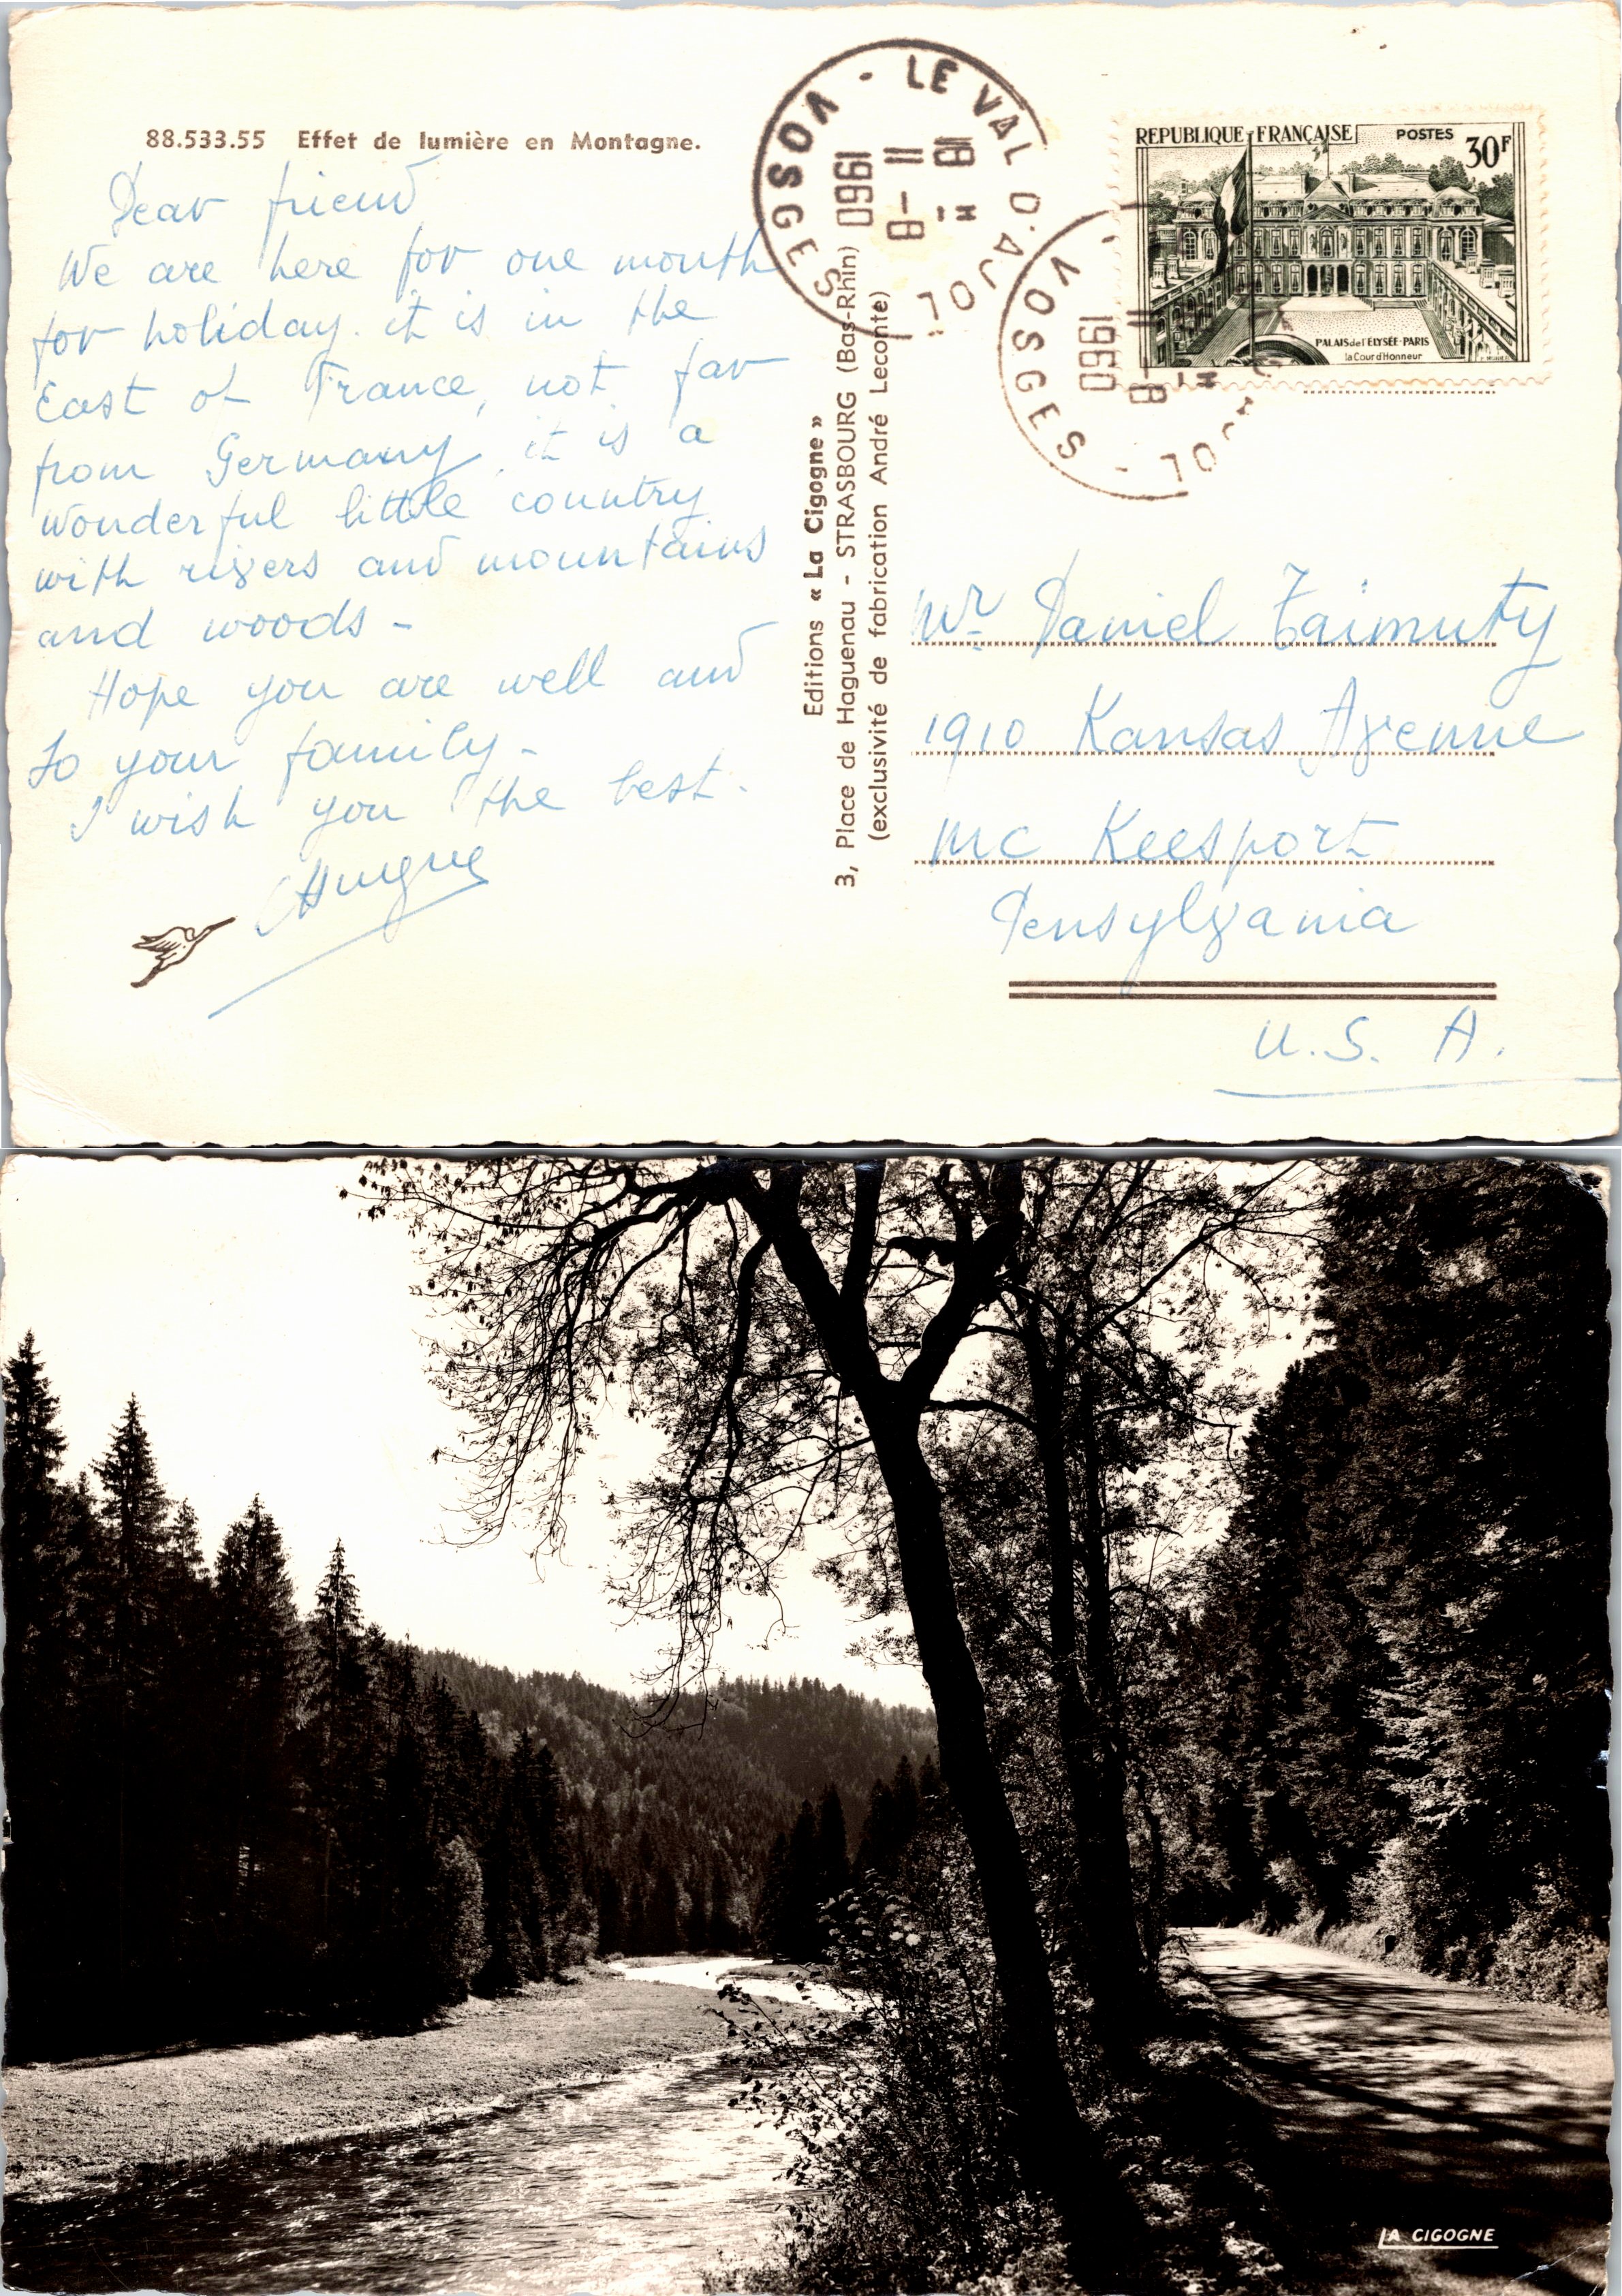 88.533.55 Effet de lumière en Montagne.
Dear friend
We are here for one month
for holiday. it is in the
East of France, not far
from Germany, it is a
wonderful little country
with rivers and mountains
and woods -
Hope you are well and
so your family -
I wish you the best.
Editions « La Cigogne »
3, Place de Haguenau - STRASBOURG (Bas-Rhin)
(exclusivité de fabrication André Leconte)
LE VAL D'AJOL
VOSGES
18 H
11 - 8
1960
REPUBLIQUE FRANÇAISE POSTES 30F
PALAIS de l'ÉLYSÉE - PARIS
la Cour d'Honneur
VOSGES
H
11 - 8
1960
OL
Mr. Daniel Taimuty
1910 Kansas Avenue
Mc Keesport
Pensylvania
U.S.A.
LA CIGOGNE